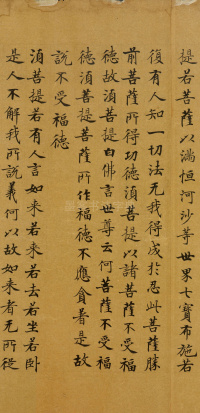 提若菩薩以滿恒河沙等世界七寶布施若
復有人知一切法无我得成於忍此菩薩勝
前菩薩所得功德須菩提以諸菩薩不受福
德故須菩提白佛言世尊云何菩薩不受福
德須菩提菩薩所作福德不應貪著是故
說不受福德
須菩提若有人言如来若来若去若坐若卧
是人不解我所說義何以故如来者无所從